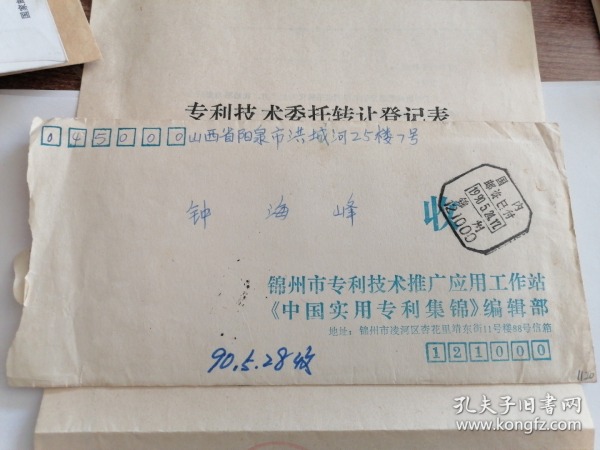 专利技术委托转让登记表
045000 山西省阳泉市洪城河25楼7号
钟海峰
收
国内
邮资已付
1990.5.24.12
锦州
121000
锦州市专利技术推广应用工作站
《中国实用专利集锦》编辑部
地址:锦州市凌河区杏花里靖东街11号楼88号信箱
121000
90.5.28收
孔夫子旧书网
www.kongfz.com